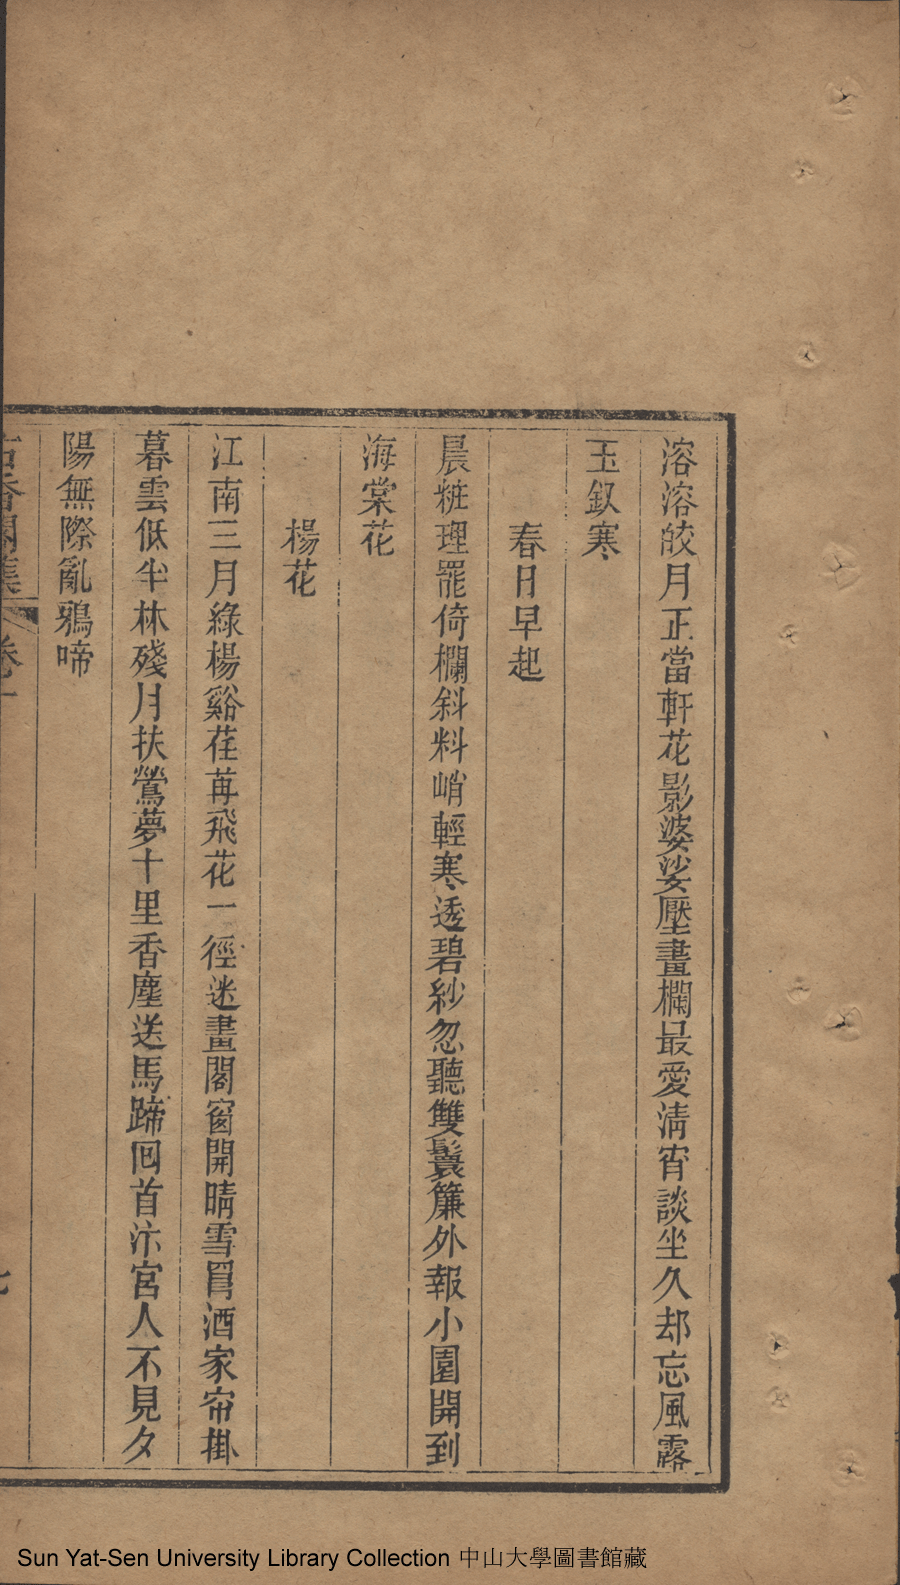 溶溶皎月正當軒花影婆娑壓畫欄最愛清宵談坐久却忘風露
玉釵寒
春日早起
晨粧理罷倚欄斜料峭輕寒透碧紗忽聽雙鬟簾外報小園開到
海棠花
楊花
江南三月綠楊谿荏苒飛花一徑迷畫閣窗開晴雪罥酒家帘掛
暮雲低半林殘月扶鶯夢十里香塵送馬蹄回首汴宮人不見夕
陽無際亂鴉啼
香閣集
卷一
七
Sun Yat-Sen University Library Collection 中山大學圖書館藏